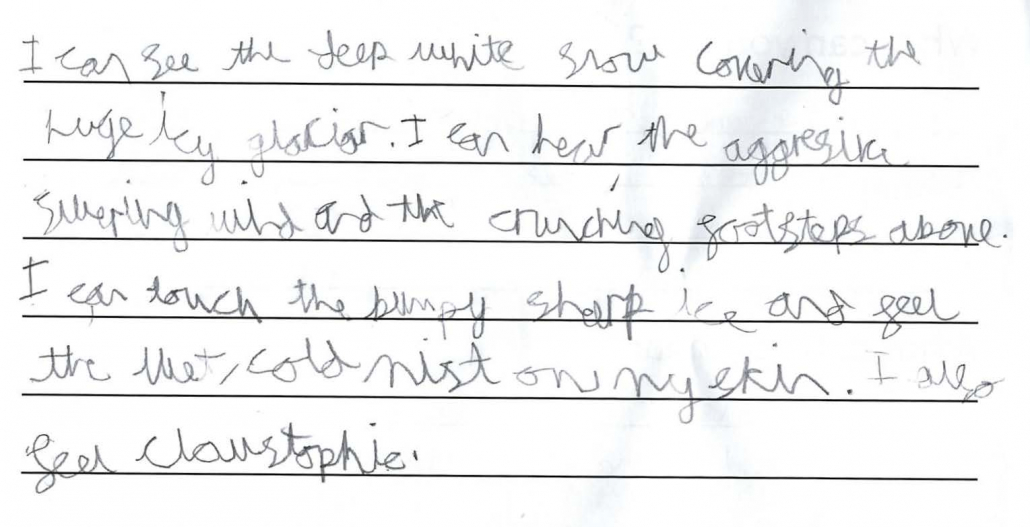 I can see the deep white snow covering the
huge icy glaciar. I can hear the aggresive
swepring wind and the crunching footsteps above.
I can touch the bumpy sharp ice and feel
the wet, cold mist on my skin. I also
feel claustophic.